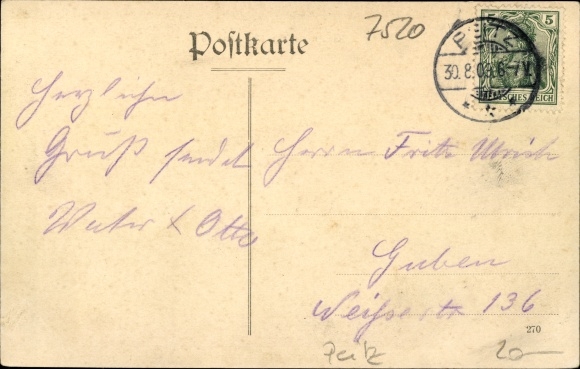 7520
Postkarte
5
PEITZ
30.8.09.6-7V.
DEUTSCHES REICH
Herzlichen
Gruß sendet
Vater & Otto
Herrn Fritz Ulrich
Guben
136
270
Peitz
20-